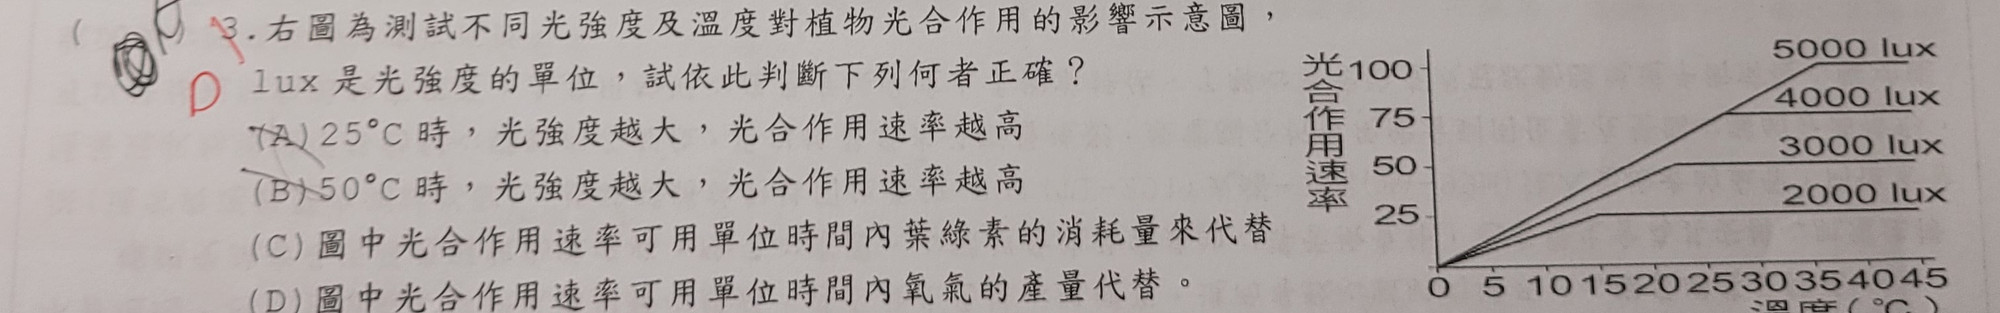 ( ) 3.右圖為測試不同光強度及溫度對植物光合作用的影響示意圖，
D
lux 是光強度的單位，試依此判斷下列何者正確？
(A)25°C時，光強度越大，光合作用速率越高
(B)50°C時，光強度越大，光合作用速率越高
(C)圖中光合作用速率可用單位時間內葉綠素的消耗量來代替
(D)圖中光合作用速率可用單位時間內氧氣的產量代替。
光合作用速率
100
75
50
25
5000 lux
4000 lux
3000 lux
2000 lux
0 5 10 15 20 25 30 35 40 45
溫度(°C)